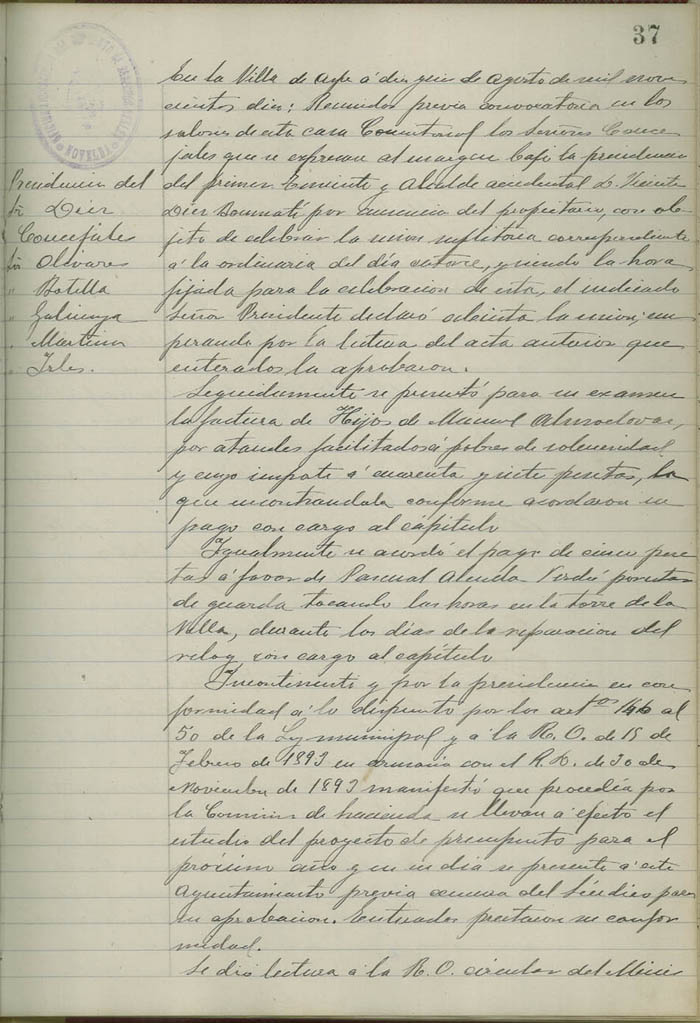 37
En la Villa de Aspe á diez y seis de Agosto de mil nove
cientos diez: Reunidos previa convocatoria en los
salones de esta casa Consistorial los Señores Conce
jales que se expresan al margen bajo la presidencia
del primer Teniente y Alcalde accidental D. Vicente
Diez por ausencia del propietario, con ob
jeto de celebrar la sesion supletoria correspondiente
á la ordinaria del día catorce, y siendo la hora
fijada para la celebracion de esta, el indicado
Señor Presidente declaró abierta la sesion, em
pezando por la lectura del acta anterior que
enterados la aprobaron.
Presidencia del
Sr Diez
Concejales
Sr Olivares
" Botella
"
" Martinez
" Irles.
Seguidamente se presentó para su examen
la factura de Hijos de Manuel Almodovar,
por ataudes facilitados á pobres de solemnidad
y cuyo importe á cuarenta y siete pesetas, la
que encontrandola conforme acordaron su
pago con cargo al capítulo
Igualmente se acordó el pago de cinco pese
tas á favor de Pascual Verdú por estar
de guarda tocando las horas en la torre de la
Villa, durante los días de la reparacion del
reloj con cargo al capítulo
Incontinente y por la presidencia en con
formidad á lo dispuesto por los artos 146 al
50 de la Ley municipal y á la R. O. de 15 de
Febrero de 1893 en armonia con el R. D. de 30 de
Noviembre de 1893 manifestó que procedía por
la Comision de hacienda se llevara á efecto el
estudio del proyecto de presupuesto para el
próximo año y que en su dia se presente á este
Ayuntamiento previa censura del Síndico para
su aprobacion. Enterados prestaron su confor
midad.
Se dió lectura á la R. O. circular del Minis